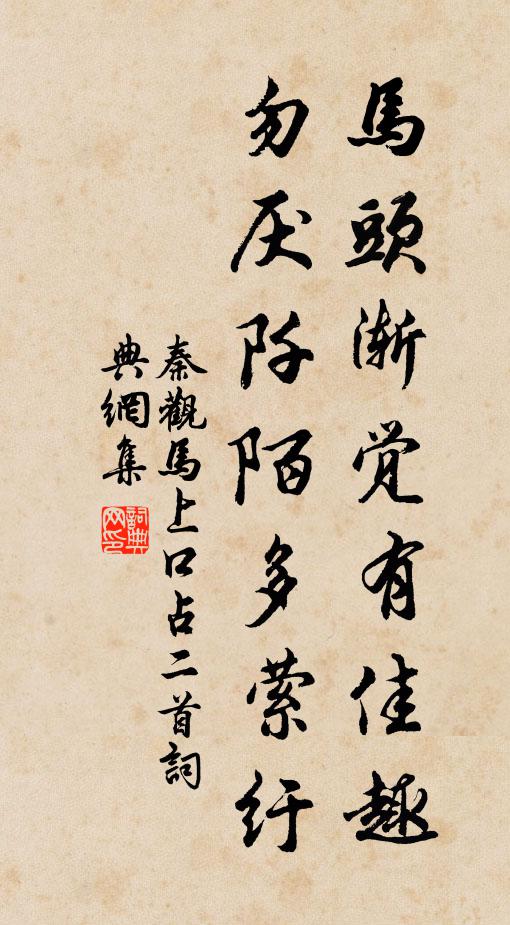 馬頭漸觉有佳趣
勿厌阡陌多萦纡
秦觀馬上口占二首詞
典網集
詞典網印